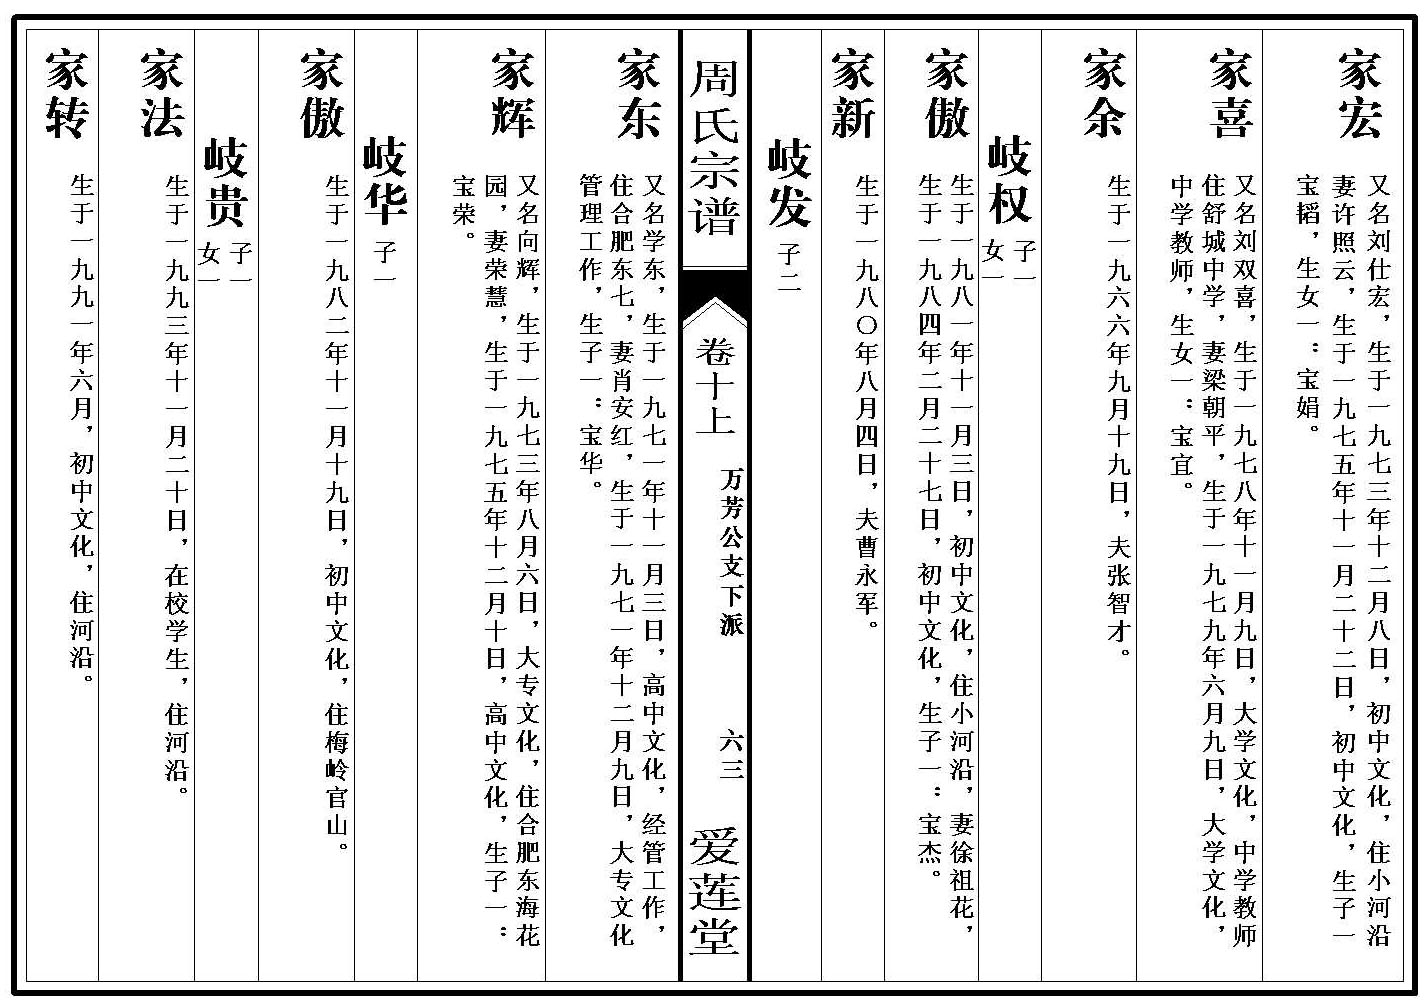 家宏
又名刘仕宏，生于一九七三年十二月八日，初中文化，住小河沿
妻许照云，生于一九七五年十一月二十二日，初中文化，生子一
宝韬，生女一：宝娟。
家喜
又名刘双喜，生于一九七八年十一月九日，大学文化，中学教师
住舒城中学，妻梁朝平，生于一九七九年六月九日，大学文化，
中学教师，生女一：宝宜。
家余
生于一九六六年九月十九日，夫张智才。
岐权
子一
女一
家傲
生于一九八一年十一月三日，初中文化，住小河沿，妻徐祖花，
生于一九八四年二月二十七日，初中文化，生子一：宝杰。
家新
生于一九八〇年八月四日，夫曹永军。
岐发
子二
周氏宗谱
卷十上
万芳公支下派
六三
爱莲堂
家东
又名学东，生于一九七一年十一月三日，高中文化，经管工作，
住合肥东七，妻肖安红，生于一九七一年十二月九日，大专文化
管理工作，生子一：宝华。
家辉
又名向辉，生于一九七三年八月六日，大专文化，住合肥东海花
园，妻荣慧，生于一九七五年十二月十日，高中文化，生子一：
宝荣。
岐华
子一
家傲
生于一九八二年十一月十九日，初中文化，住梅岭官山。
岐贵
子一
女一
家法
生于一九九三年十一月二十日，在校学生，住河沿。
家转
生于一九九一年六月，初中文化，住河沿。